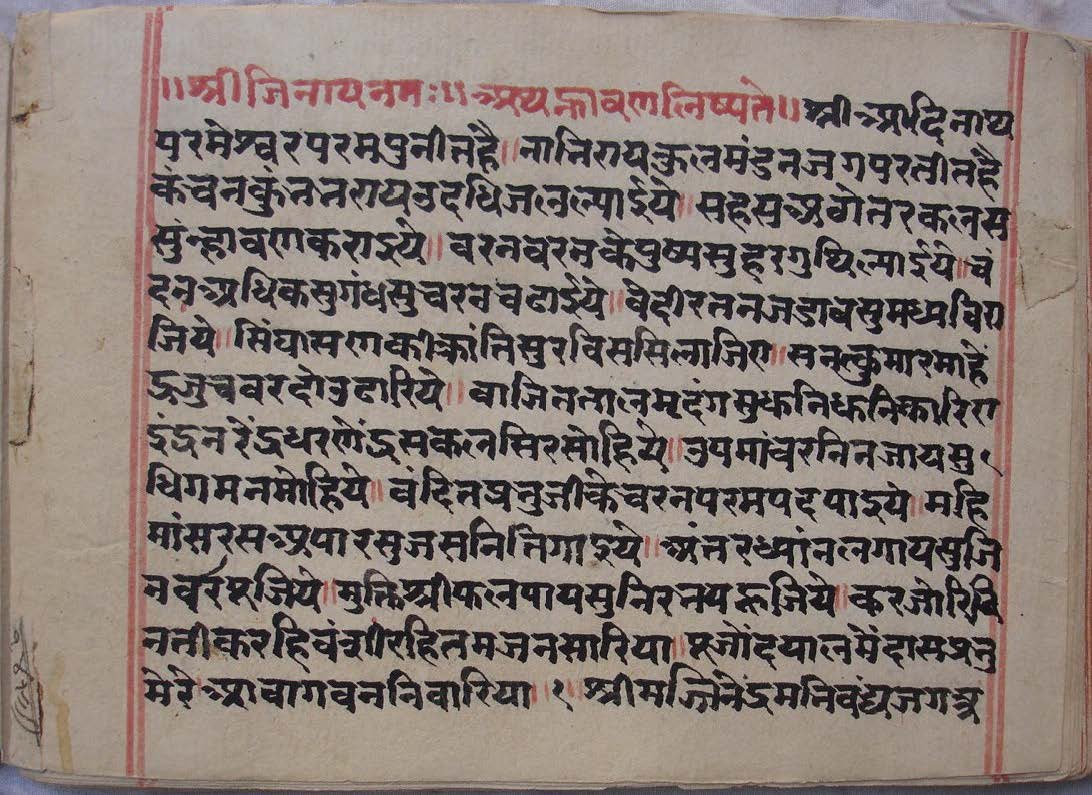 ॥श्रीजिनायनमः॥अथह्नावणलिष्यते॥श्रीआदिनाथ
परमेश्वरपरमपुनीतहै॥नाभिरायकुलमंडनजगपरतीतहै
कंचनकुंभभरायउदधिजलुल्याईये॥सहसुअठोतरकलस
सुंन्हावणकराइये॥वरनवरनकेपुष्पसुहरगुथिल्याईये॥चं
दनअधिकसुगंधसुचरनचढाईये॥वेदीरतनजडावसुमध्यविरा
जिये॥सिंघासणकीक्रांतिसुरविससिलाजिए॥सनत्कुमारमाहें
द्रजुचवरदोउढारिये॥वाजिततालमृदंगमुधुनिधुनिकारिए
इंद्रनरेंद्रधरणेंद्रसकलसिरसोहिये॥उपमांवरनिनजायमु
धिगमनमोहिये॥वंदितप्रभुजीकेचरनपरमपदपाइये॥महि
मांसरसअपारसुजसनितिगाइये॥अंतरध्यांनलगायसुजि
नवरपूजिये॥मुक्तिश्रीफलपायसुनिरभयहूजिये॥करजोरिवि
नतीकरहिवंशीरहितमजनसारिया॥पूजौंदयालमैंदासप्रभु
मेरेआवागवननिवारिया॥१॥श्रीमज्जिनेंद्रमभिवंद्यजगत्र